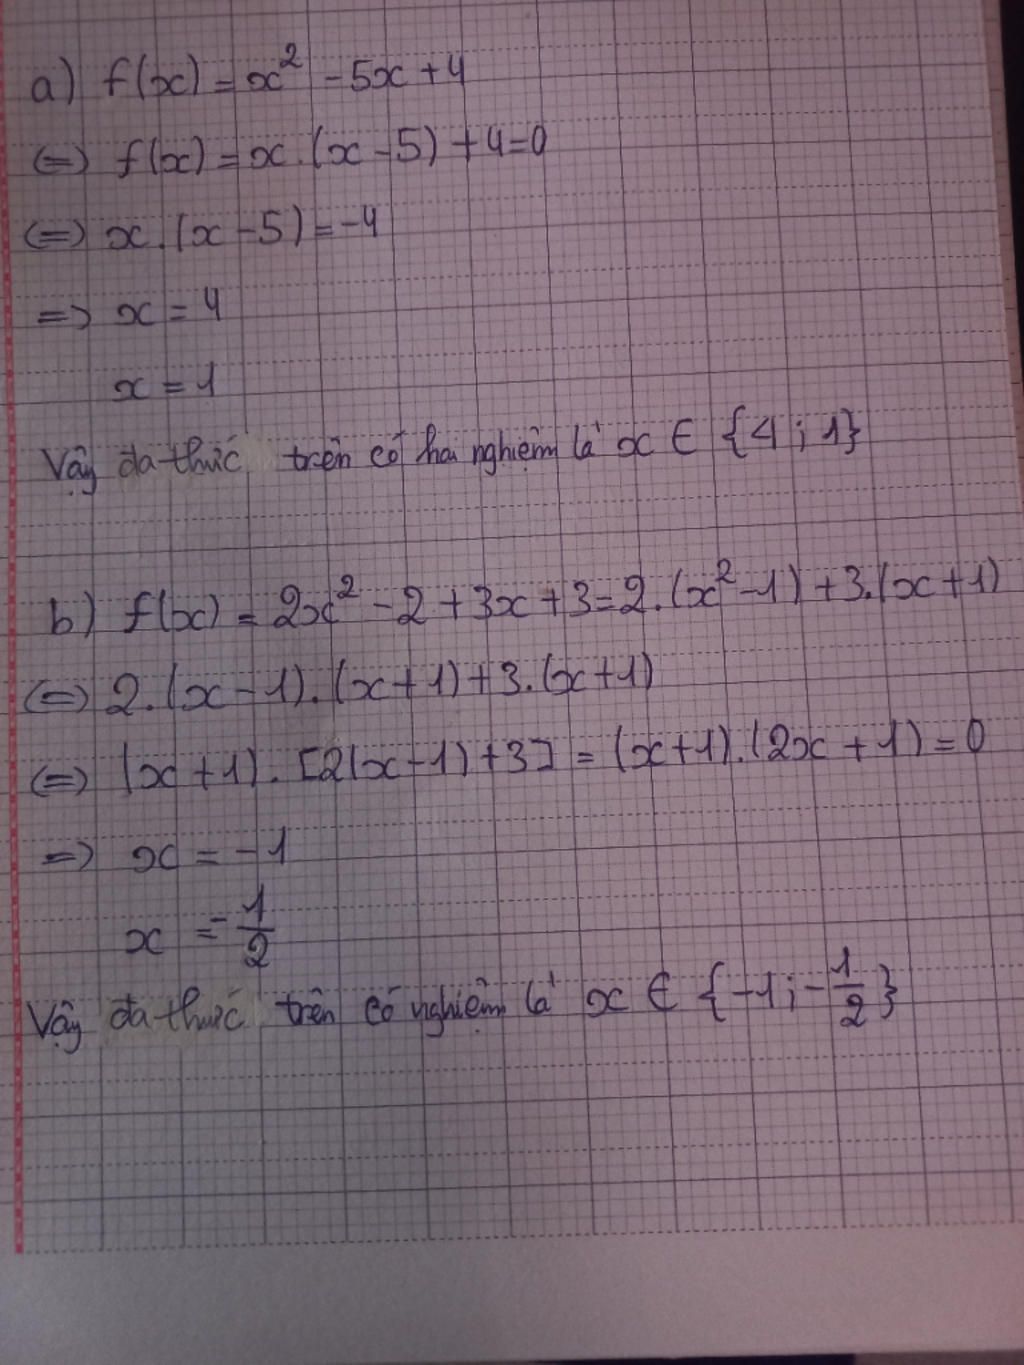 a) f(x) = x² - 5x + 4
(=) f(x) = x.(x-5) + 4=0
(=) x.(x-5) = -4
=> x = 4
x = 1
Vậy đa thức trên có hai nghiệm là x ∈ {4; 1}
b) f(x) = 2x² - 2 + 3x + 3 = 2.(x² - 1) + 3.(x + 1)
(=) 2.(x - 1).(x + 1) + 3.(x + 1)
(=) (x + 1).[2(x - 1) + 3] = (x + 1).(2x + 1) = 0
=> x = -1
x = -1/2
Vậy đa thức trên có nghiệm là x ∈ {-1; -1/2}